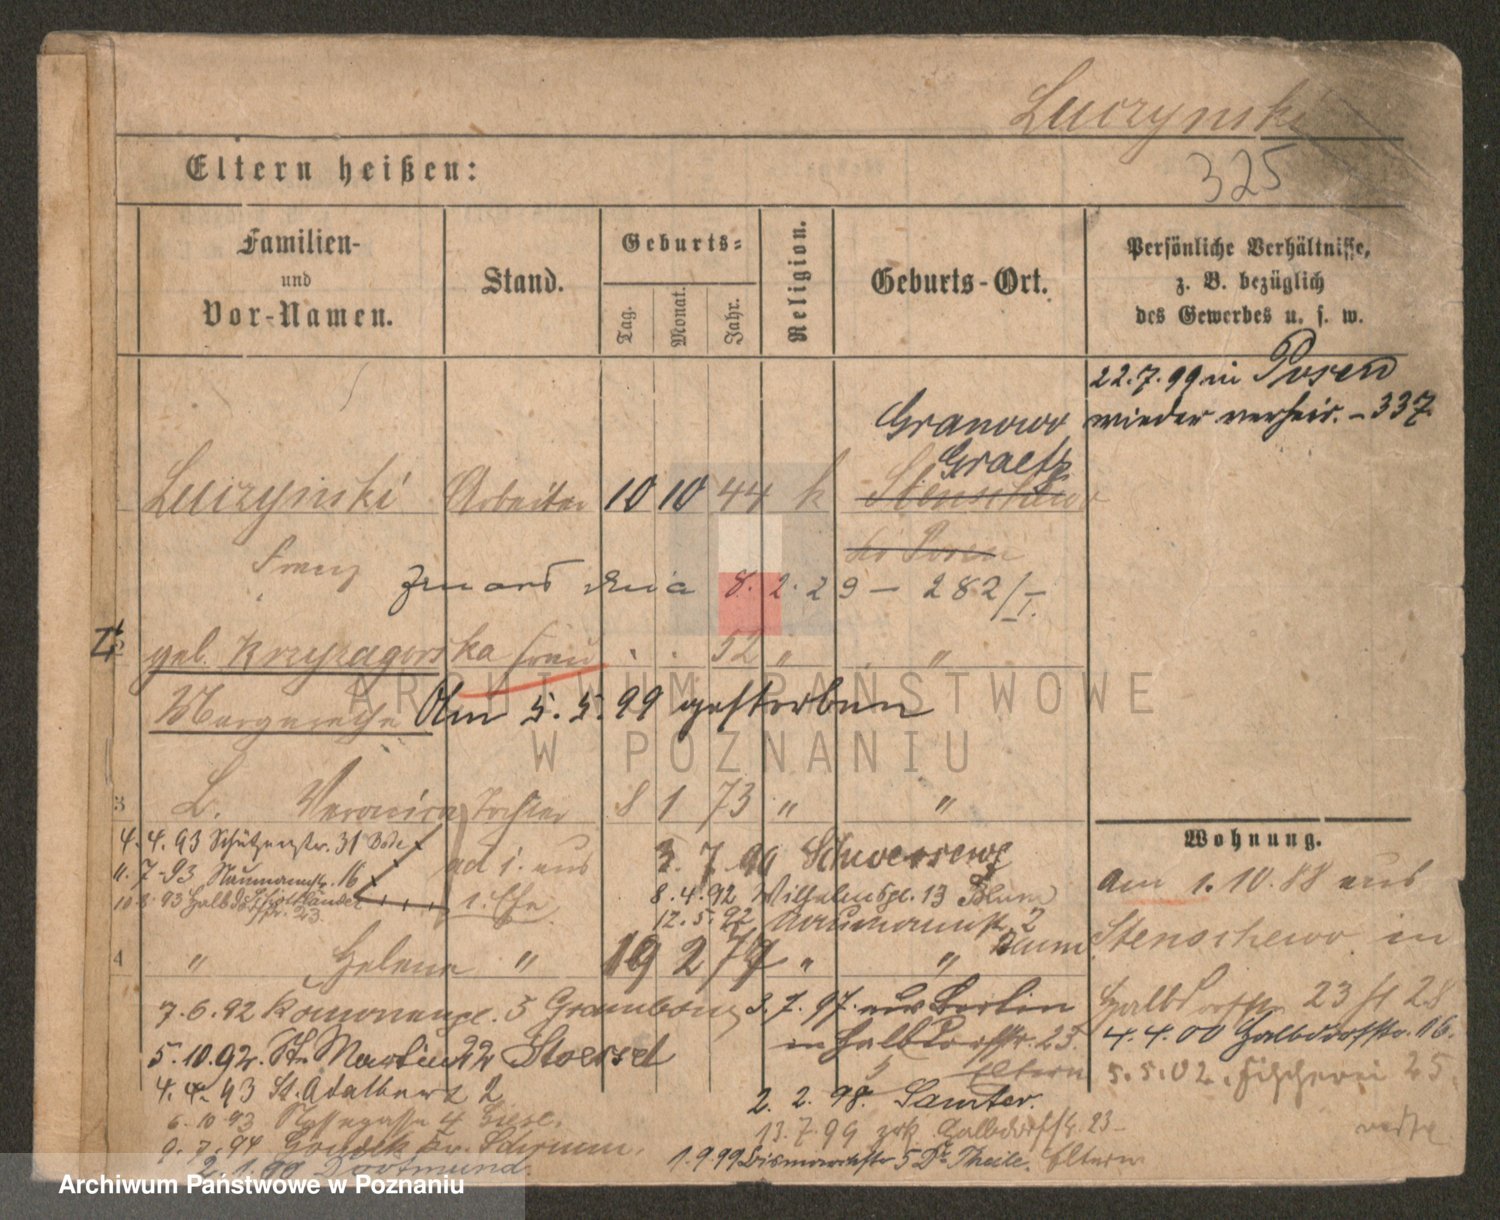 Luczynski
325
Eltern heißen:
Familien-
und
Vor-Namen.
Stand.
Geburts-
Tag.
Monat.
Jahr.
Religion.
Geburts-Ort.
Persönliche Verhältnisse,
z. B. bezüglich
des Gewerbes u. s. w.
22.7.99 in Posen
wieder verheir. - 337
Granowo
Graetz
Luczynski Arbeiter 10 10 44 k Stenschewo
Franz
bei Posen
zmarł dnia 8.2.29 - 282/I.
2 geb. Krzyzagorska Frau . . 52 " . "
Margarethe Am 5.5.99 gestorben
3 L. Veronica Tochter 8 1 73 " "
Wohnung.
4.4.93 Schützenstr. 31
11.7.93 Naumannstr. 16
ad 1. aus
1. Ehe
3.7.90 Schwersenz
8.4.92 Wilhelmspl. 13 Blum
12.5.92 Naumannstr. 2
Blum
4 " Helene " 19 2 79 " "
am 1.10.88 aus
Stenschewo in
Halbdorfstr. 23 H 28
4.4.00 Halbdorfstr. 16.
5.5.02. Fischerei 25
7.6.92 5
3.7.97. aus Berlin
in Halbdorfstr. 23.
Eltern
5.10.92. St. Martin 22 Stoessel
4.4.93 St. Adalbert 2
2.2.98. Samter.
6.10.93 4
13.7.99 zrk. Halbdorfstr. 23
9.7.94
2.1.99 Dortmund.
1.9.99 Bismarckstr 5 Dr. Theile. Eltern
ARCHIWUM PAŃSTWOWE
W POZNANIU
Archiwum Państwowe w Poznaniu